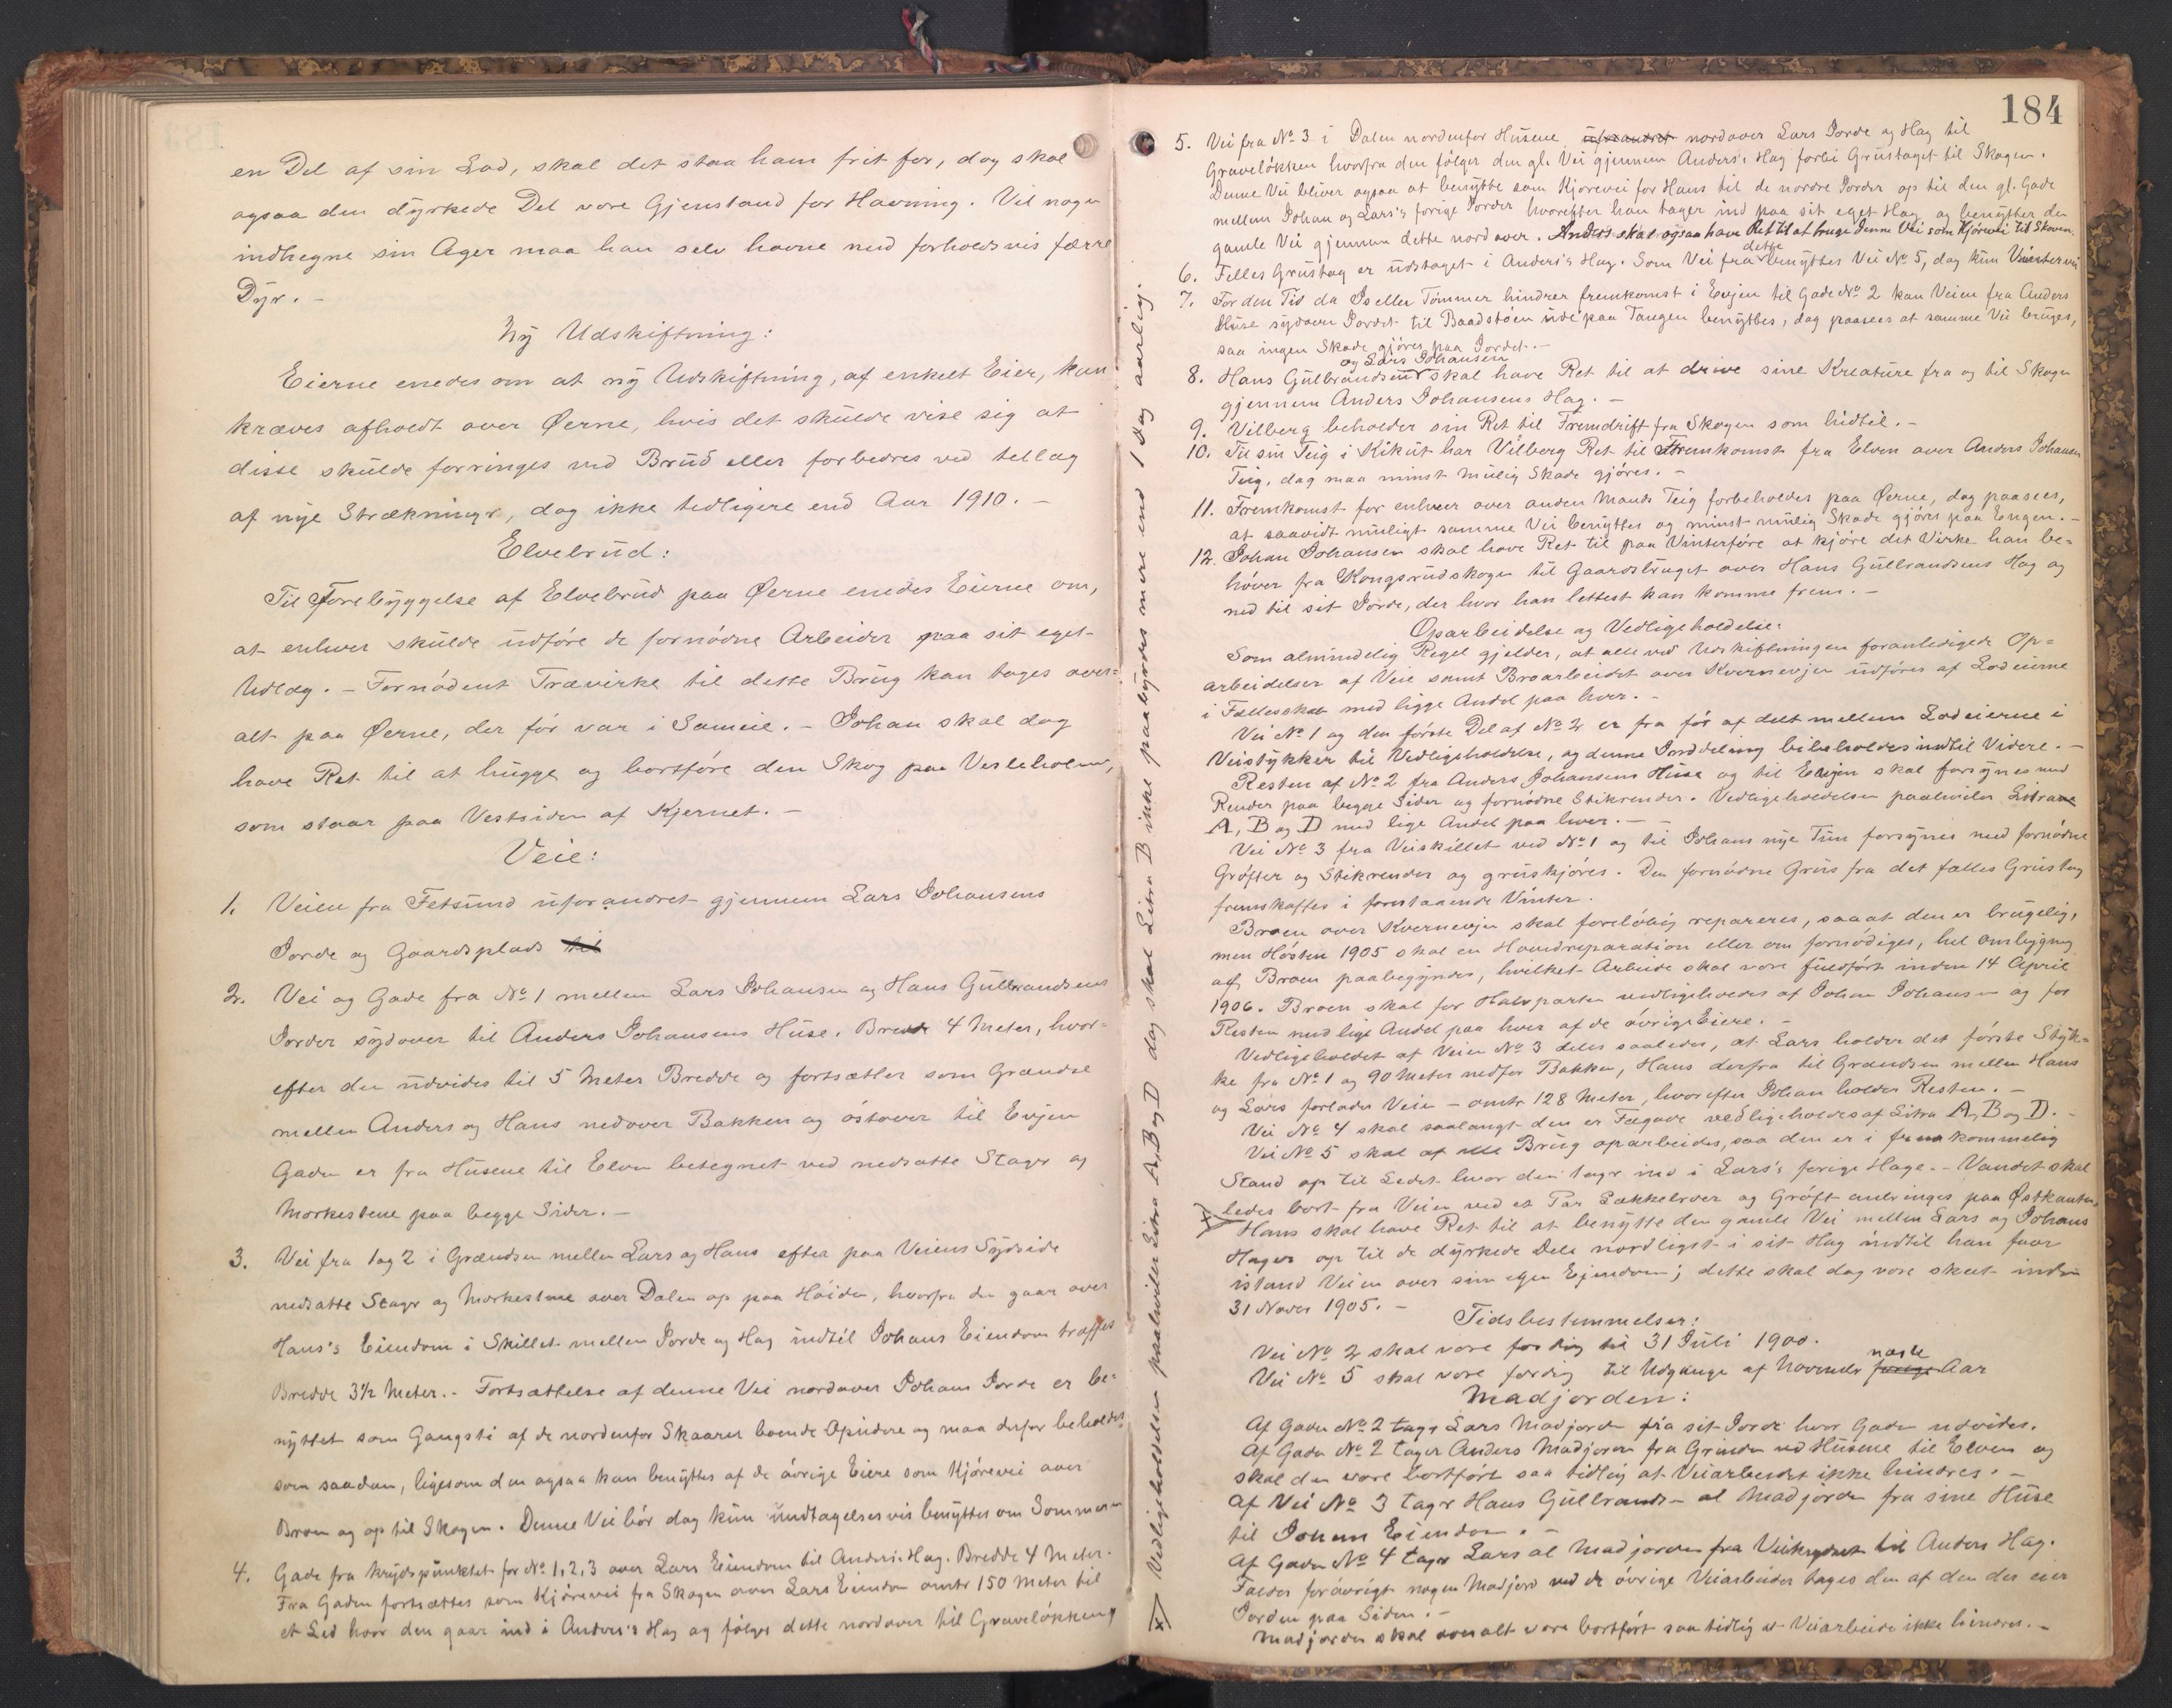 en Del af sin Lod, skal det staa ham frit for, dog skal
ogsaa den dyrkede Del være Gjenstand for Havning. Vil nogen
indhegne sin Ager maa han selv havne med forholdsvis færre
Dyr. -
Ny Udskiftning:
Eierne enedes om at ny Udskiftning, af enkelt Eier, kan
kræves afholdt over Ørerne, hvis det skulde vise sig at
disse skulde forringes ved Brud eller forbedres ved tillæg
af nye Strækninger, dog ikke tidligere end Aar 1910. -
Elvebrud:
Til Forebyggelse af Elvebrud paa Ørerne enedes Eierne om,
at enhver skulde udføre de fornødne Arbeider paa sit eget
Udlæg. - Fornødent Trævirke til dette Brug kan tages over=
alt paa Ørerne, der før var i Sameie. - Johan skal dog
have Ret til at hugge og bortføre den Skog paa Vesleholmen,
som staar paa Vestsiden af Kjernet. -
Veie:
1. Veien fra Fetsund uforandret gjennem Lars Johansens
Jorde og Gaardsplads til
2. Vei og Gade fra No 1 mellem Lars Johansen og Hans Gulbrandsens
Jorder sydover til Anders Johansens Huse. Bredde 4 Meter, hvor=
efter den udvides til 5 Meter Bredde og fortsætter som Grændse
mellem Anders og Hans nedover Bakken og østover til Evjen
Gaden er fra Husene til Elven betegnet ved nedsatte Stager og
Merkestene paa begge Sider. -
3. Vei fra 1 og 2 i Grændsen mellem Lars og Hans efter paa Veiens Sydside
nedsatte Stager og Merkestene over Dalen op paa Høiden, hvorfra den gaar over
Hans's Eiendom i Skillet mellem Jorde og Hag indtil Johans Eiendom træffes
Bredde 3½ Meter. - Fortsættelse af denne Vei nordover Johans Jorde er be=
nyttet som Gangsti af de nordenfor Skaarer boende Opsidere og maa derfor beholdes
som saadan, ligesom den ogsaa kan benyttes af de øvrige Eiere som Kjørevei over
Broen og op til Skogen. Denne Vei bør dog kun undtagelsesvis benyttes om Sommeren
4. Gade fra Krydspunktet for No 1, 2, 3 over Lars Eiendom til Anders's Hag. Bredde 4 Meter.
Fra Gaden fortsættes som Kjørevei fra Skogen over Lars Eiendom omtr 150 Meter til
et Led hvor den gaar ind i Anders's Hag og følger dette nordover til Graveløkken
x) Vedligeholdelsen paahviler Litra A, B og D dog skal Litra B ikke paabyrdes mere end 1 Dag aarlig.
184
5. Vei fra No 3 i Dalen nordenfor Husene uforandret nordover Lars Jorde og Hag til
Graveløkken hvorfra den følger den gl. Vei gjennem Anders's Hag forbi Grustaget til Skogen.
Denne Vei bliver ogsaa at benytte som Kjørevei for Hans til de nordre Jorder op til den gl. Gade
mellem Johan og Lars's forige Jorder hvorefter han tager ind paa sit eget Hag og benytter den
gamle Vei gjennem dette nordover. Anders skal ogsaa have Ret til at bruge denne Vei som Kjørevei til Skoven.
6. Felles Grustag er udtaget i Anders's Hag. Som Vei fra dette benyttes Vei No 5, dog kun Vintervei
7. For den Tid da Is eller Tømmer hindrer fremkomst i Evjen til Gade No 2 kan Veien fra Anders
Huse sydover Jordet til Baadstøen ude paa Tangen benyttes, dog paasees at samme Vei bruges,
saa ingen Skade gjøres paa Jordet. -
8. Hans Gulbrandsen og Lars Johansen skal have Ret til at drive sine Kreature fra og til Skogen
gjennem Anders Johansens Hag. -
9. Vilberg beholder sin Ret til Fremdrift fra Skogen som hidtil. -
10. Til sin Teig i Kikut har Vilberg Ret til Fremkomst fra Elven over Anders Johansens
Teig, dog maa minst mulig Skade gjøres. -
11. Fremkomst for enhver over anden Mands Teig forbeholdes paa Ørerne, dog paasees,
at saavidt muligt samme Vei benyttes og minst mulig Skade gjøres paa Engen. -
12. Johan Johansen skal have Ret til paa Vinterføre at kjøre det Virke han be=
høver fra Kongsrudskogen til Gaardsbruget over Hans Gulbrandsens Hag og
ned til sit Jorde, der hvor han lettest kan komme frem. -
Oparbeidelse og Vedligeholdelse:
Som almindelig Regel gjelder, at alle ved Udskiftningen foranledigede Op=
arbeidelser af Veie samt Broarbeidet over Kvernevjen udføres af Lodeierne
i Fællesskab med ligge Andel paa hver. -
Vei No 1 og den første Del af No 2 er fra før af delt mellem Lodeierne i
Veistykker til Vedligeholdelse, og denne Inddeling bibeholdes indtil Videre. -
Resten af No 2 fra Anders Johansens Huse og til Evjen skal forsynes med
Render paa begge Sider og fornødne Stikrender. Vedligeholdelsen paahviler Litrane
A, B og D med lige Andel paa hver. -
Vei No 3 fra Veiskillet ved No 1 og til Johans nye Tun forsynes med fornødne
Grøfter og Stikrender og gruskjøres. Den fornødne Grus fra det fælles Grustag
fremskaffes i forestaaende Vinter.
Broen over Kvernevjen skal foreløbig repareres, saa at den er brugelig,
men Høsten 1905 skal en Hovedreparation eller om fornødiges, hel ombygning
af Broen paabegyndes, hvilket Arbeide skal være fuldført inden 14 April
1906. Broen skal for Halvparten vedligeholdes af Johan Johansen og for
Resten med lige Andel paa hver af de øvrige Eiere. -
Vedligeholdet af Veien No 3 deles saaledes, at Lars holder det første Styk=
ke fra No 1 og 90 Meter nedfor Bakken, Hans derfra til Grændsen mellem Hans
og Lars forlader Veien - omtr 128 Meter, hvorefter Johan holder Resten. -
Vei No 4 skal saalangt den er Fægade, vedligeholdes af Litra A, B og D. -
Vei No 5 skal af alle Brug oparbeides, saa den er i fremkommelig
Stand op til Ledet hvor den tager ind i Lars's forige Hage. - Vandet skal
x) ledes bort fra Veien ved et Par Lækkelroer og Grøft anbringes paa Østkanten,
Hans skal have Ret til at benytte den gamle Vei mellem Lars og Johans
Hager op til de dyrkede Dele nordligst i sit Hag indtil han faar
istand Veien over sin egen Ejendom; dette skal dog være skeet inden
31 Novbr 1905. -
Tidsbestemmelser:
Vei No 2 skal være færdig til 31 Juli 1900.
Vei No 5 skal være færdig til Udgange af November forige næste Aar
Madjorden:
Af Gaden No 2 tager Lars Madjorden fra sit Jorde hvor Gaden udvides.
Af Gaden No 2 tager Anders Madjorden fra Grinden ved Husene til Elven og
skal den være bortført saa tidlig at Veiarbeidet ikke hindres. -
Af Vei No 3 tager Hans Gulbrands- al Madjorden fra sine Huse
til Johans Eiendom. -
Af Gaden No 4 tager Lars al Madjorden fra Veikrydset til Anders Hag.
Falder forøvrigt nogen Madjord ved de øvrige Veiarbeider tages den af den der eier
Jorden paa Siden. -
Madjorden skal overalt være bortført saa tidlig at Veiarbeide ikke hindres. -